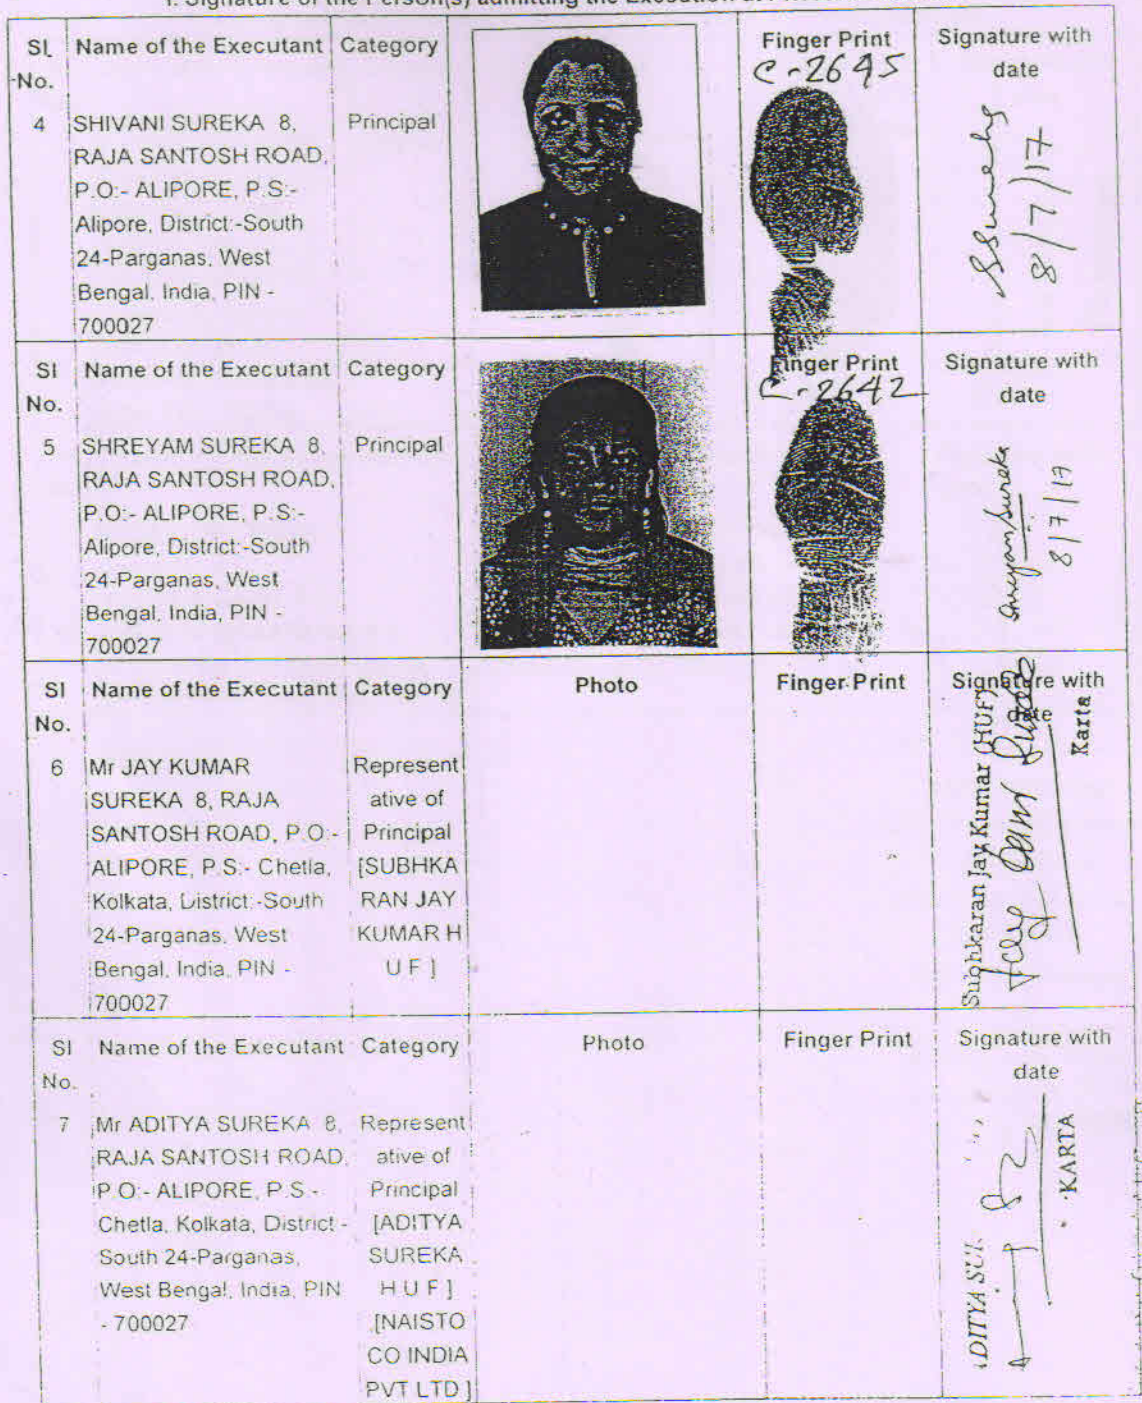 I. Signature of the Person(s) admitting the Execution at
Sl No. Name of the Executant Category Finger Print Signature with date
C-2645
4 SHIVANI SUREKA 8, Principal
RAJA SANTOSH ROAD,
P.O:- ALIPORE, P.S:-
Alipore, District:-South
24-Parganas, West
Bengal, India, PIN -
700027
SSureka
8/7/17
Sl No. Name of the Executant Category Finger Print Signature with date
C-2642
5 SHREYAM SUREKA 8, Principal
RAJA SANTOSH ROAD,
P.O:- ALIPORE, P.S:-
Alipore, District:-South
24-Parganas, West
Bengal, India, PIN -
700027
Shreyam Sureka
8/7/17
Sl No. Name of the Executant Category Photo Finger Print Signature with date
6 Mr JAY KUMAR
SUREKA 8, RAJA
SANTOSH ROAD, P.O:-
ALIPORE, P.S:- Chetla,
Kolkata, District:-South
24-Parganas, West
Bengal, India, PIN -
700027
Represent
ative of
Principal
[SUBHKA
RAN JAY
KUMAR H
U F ]
Subhkaran Jay Kumar (HUF)
Karta
Sl No. Name of the Executant Category Photo Finger Print Signature with date
7 Mr ADITYA SUREKA 8,
RAJA SANTOSH ROAD,
P.O:- ALIPORE, P.S:-
Chetla, Kolkata, District:-
South 24-Parganas,
West Bengal, India, PIN
- 700027
Represent
ative of
Principal
[ADITYA
SUREKA
H U F ]
,[NAISTO
CO INDIA
PVT LTD ]
DITYA SUR
KARTA